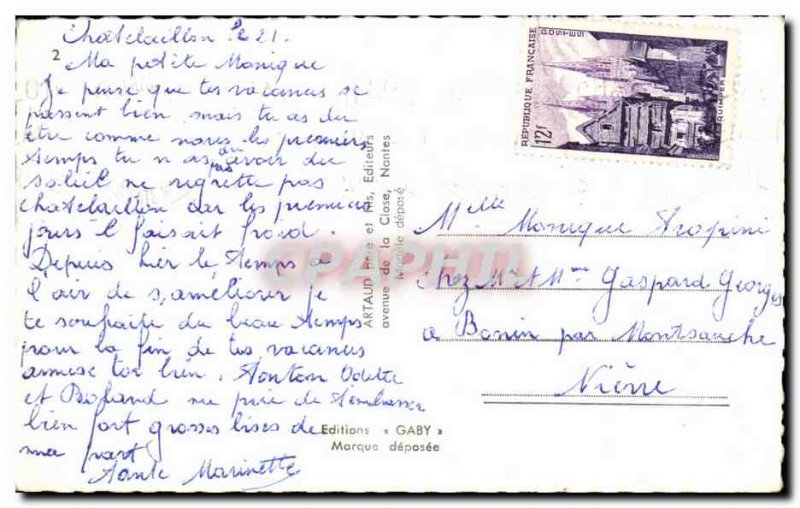 Châtelaillon le 21.
2
Ma petite Monique
Je pense que tes vacances se
passent bien, mais tu as du
être comme nous les premiers
temps tu n as pas du avoir du
soleil ne regrette pas
chatelaillon car les premiers
jours il faisait froid.
Depuis hier le temps a
l'air de s,améliorer je
te souhaite du beau temps
pour la fin de tes vacances
amuse toi bien. Tonton Odette
et Roland me prie de t'embrasser
bien fort grosses bises de
ma part
Tante Marinette
ARTAUD Père et Fils, Editeurs
avenue de la Close, Nantes
Modèle déposé
Editions « GABY »
Marque déposée
REPUBLIQUE FRANÇAISE
POSTES
12F
QUIMPER
Melle Monique
chez Mr et Mme Gaspard Georges
a Bonin par Montsauche
Nièvre
CPAPHIL